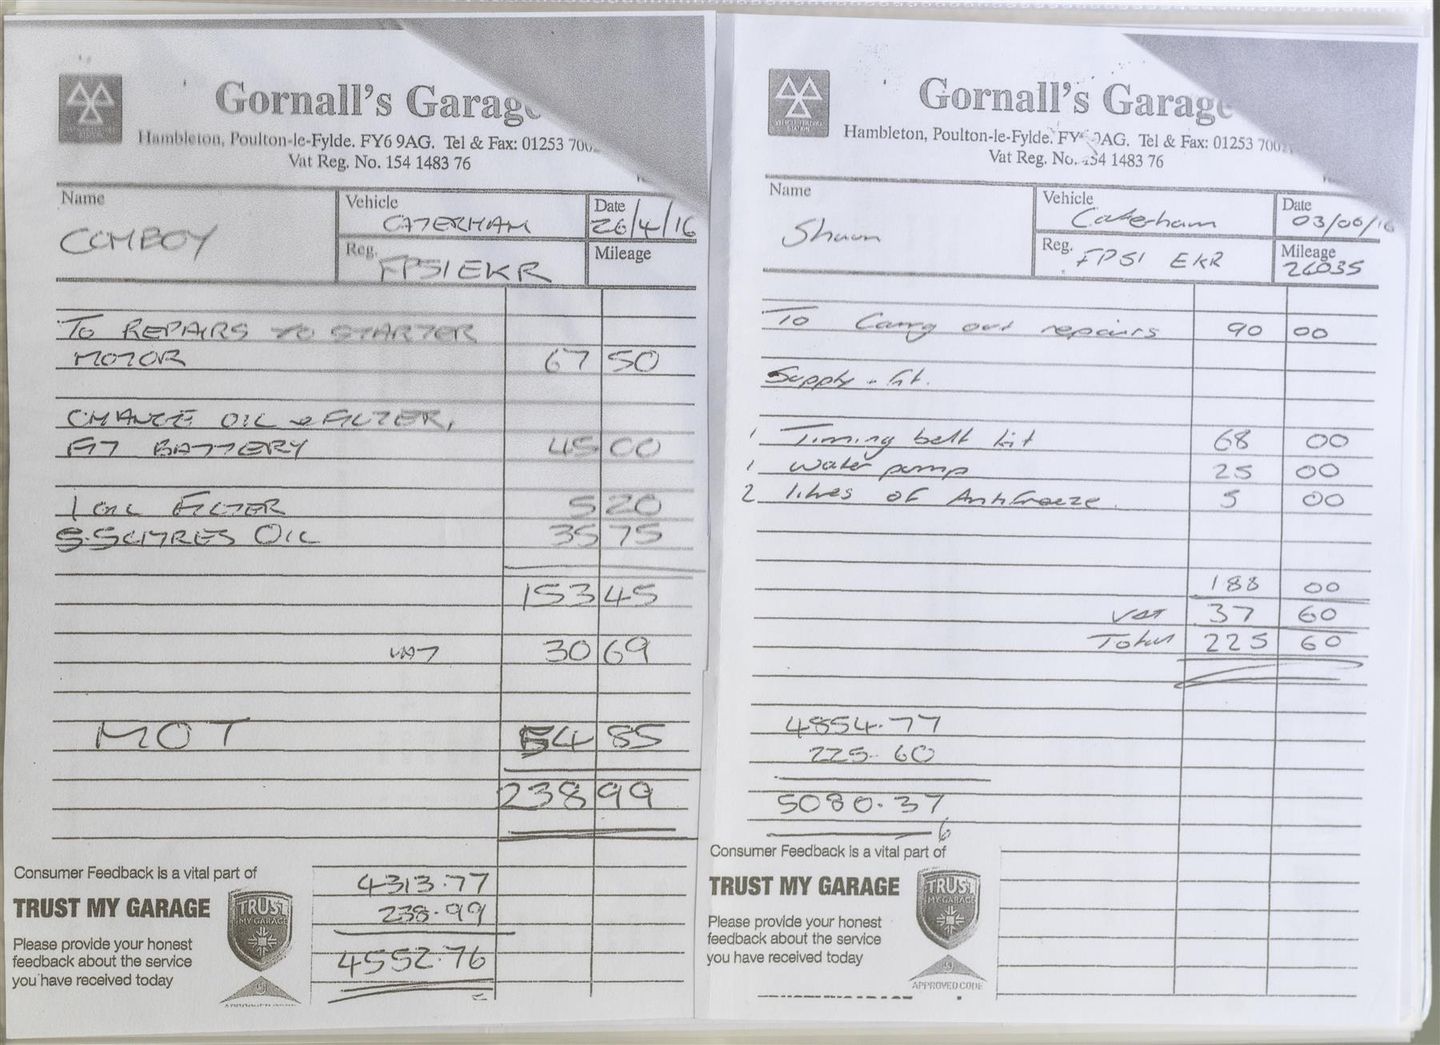 Gornall's Garage
Hambleton, Poulton-le-Fylde. FY6 9AG. Tel & Fax: 01253 700
Vat Reg. No. 154 1483 76
Name
COMBOY
Vehicle
CATERHAM
Date
26/4/16
Reg.
FP51EKR
Mileage
TO REPAIRS TO STARTER
MOTOR 67 50
CHANGE OIL & FILTER,
FIT BATTERY 45 00
1 OIL FILTER 5 20
5.5 LITRES OIL 35 75
153 45
VAT 30 69
MOT 54 85
238 99
4313.77
238.99
4552.76
Consumer Feedback is a vital part of
TRUST MY GARAGE
Please provide your honest
feedback about the service
you have received today
TRUST
MY GARAGE
Gornall's Garage
Hambleton, Poulton-le-Fylde. FY6 9AG. Tel & Fax: 01253 700
Vat Reg. No. 154 1483 76
Name
Shaun
Vehicle
Caterham
Date
03/06/16
Reg.
FP51 EKR
Mileage
26035
To Carry out repairs 90 00
Supply & fit.
1 Timing belt kit 68 00
1 water pump 25 00
2 litres of Antifreeze. 5 00
188 00
VAT 37 60
Total 225 60
4854.77
225.60
5080.37
6
Consumer Feedback is a vital part of
TRUST MY GARAGE
Please provide your honest
feedback about the service
you have received today
TRUST
MY GARAGE
APPROVED CODE